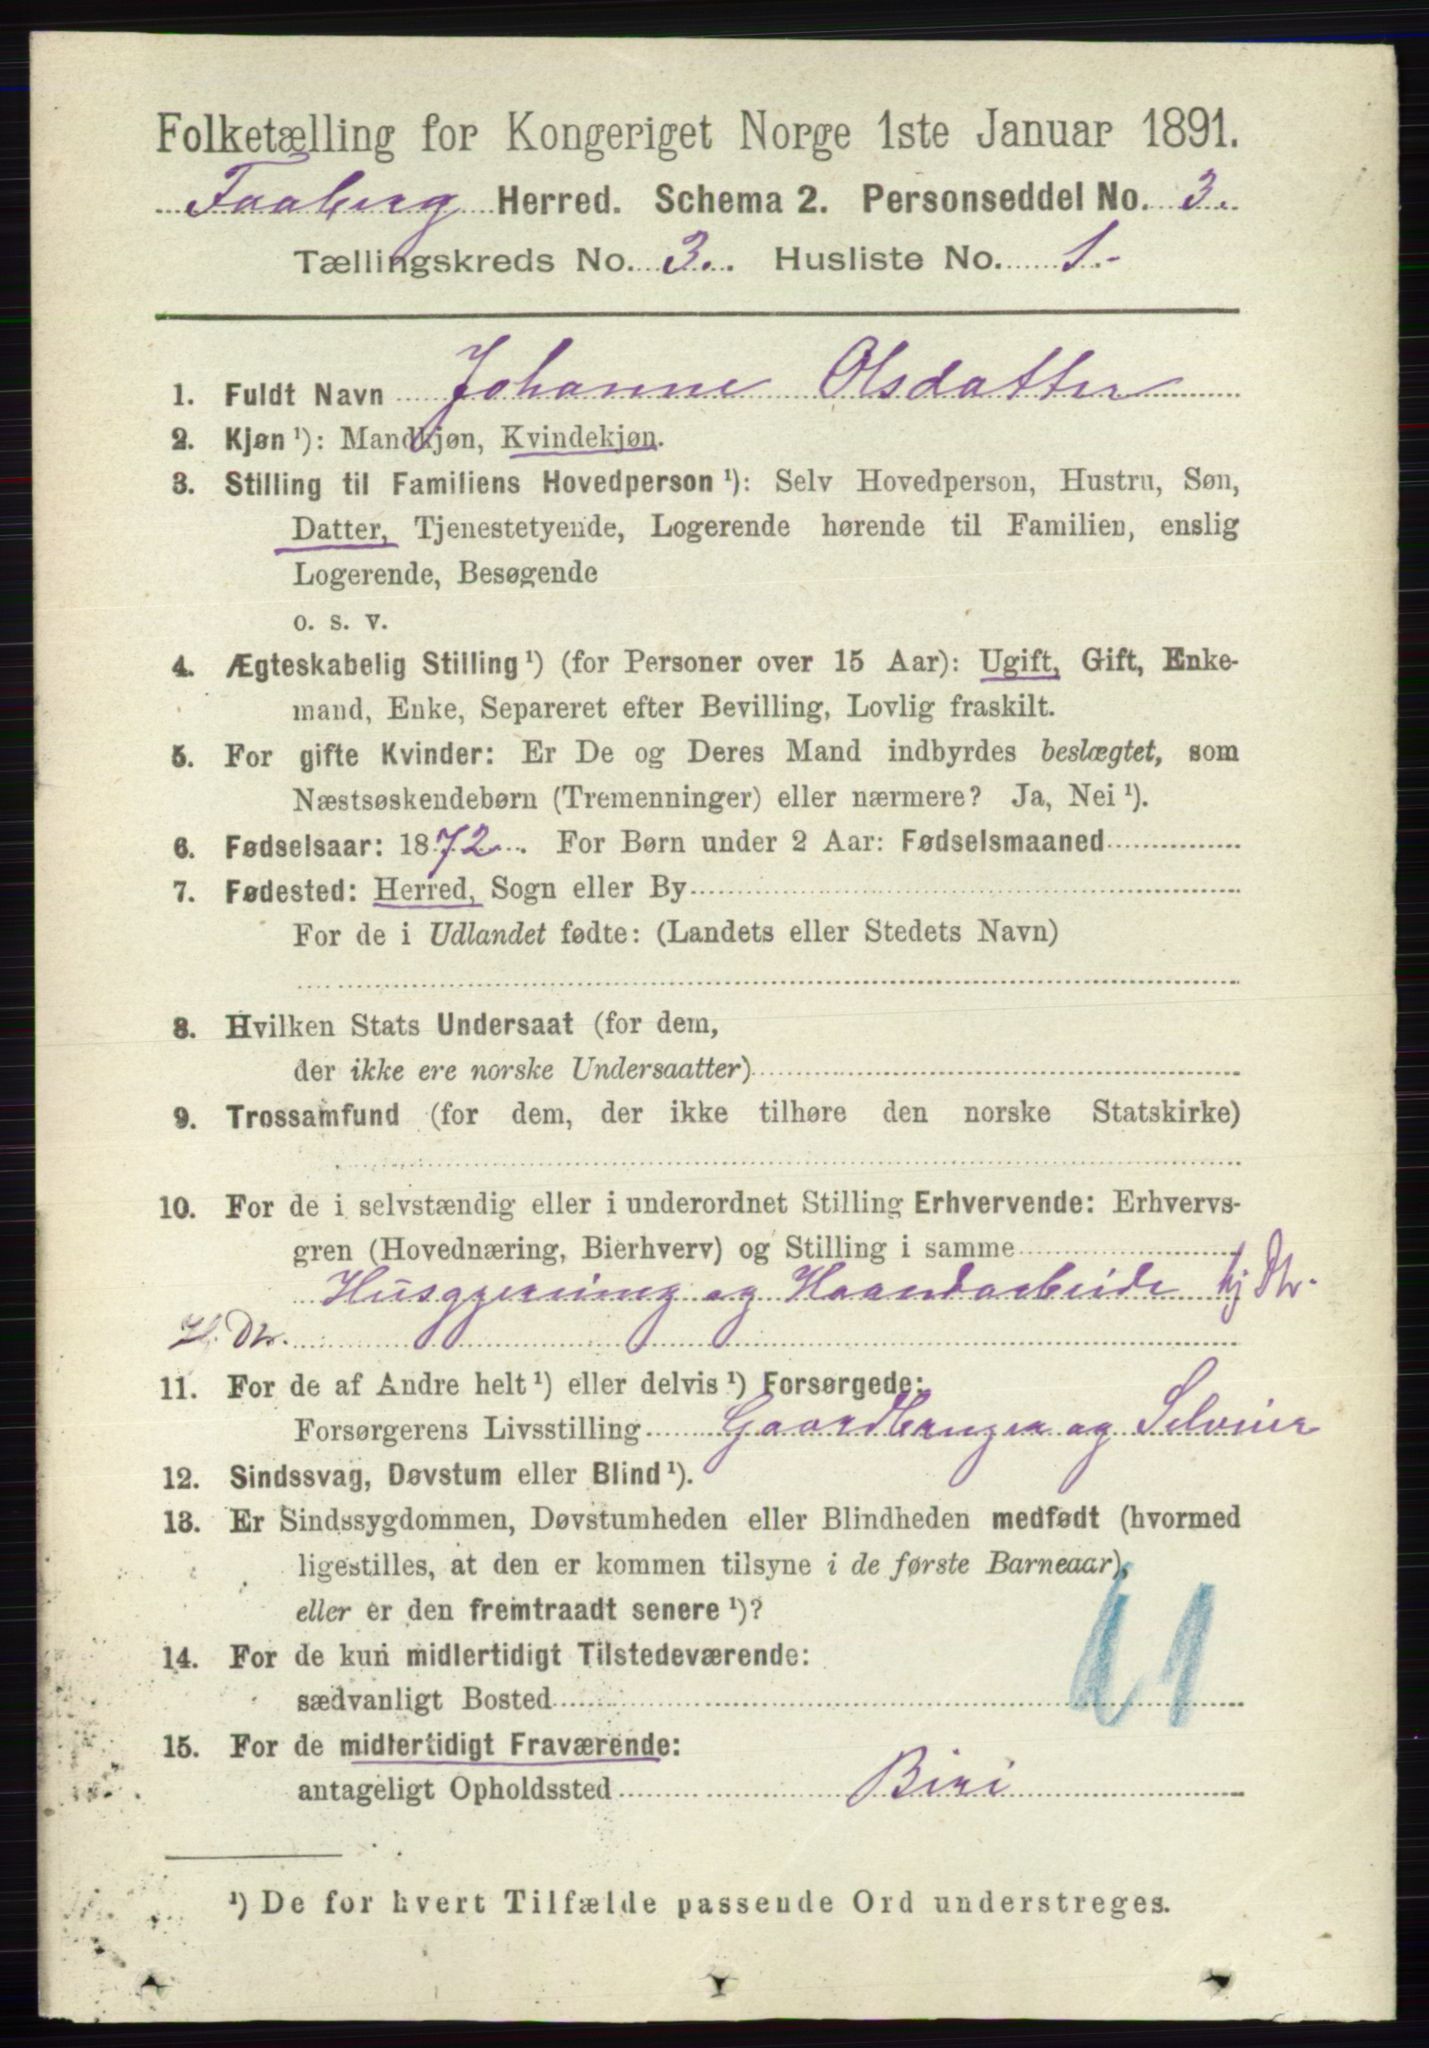 Folketælling for Kongeriget Norge 1ste Januar 1891.
Faaberg Herred. Schema 2. Personseddel No. 3.
Tællingskreds No. 3. Husliste No. 1.
1. Fuldt Navn Johanne Olsdatter
2. Kjøn ¹): Mandkjøn, Kvindekjøn.
3. Stilling til Familiens Hovedperson ¹): Selv Hovedperson, Hustru, Søn,
Datter, Tjenestetyende, Logerende hørende til Familien, enslig
Logerende, Besøgende
o. s. v.
4. Ægteskabelig Stilling ¹) (for Personer over 15 Aar): Ugift, Gift, Enke-
mand, Enke, Separeret efter Bevilling, Lovlig fraskilt.
5. For gifte Kvinder: Er De og Deres Mand indbyrdes beslægtet, som
Næstsøskendebørn (Tremenninger) eller nærmere? Ja, Nei ¹).
6. Fødselsaar: 1872. For Børn under 2 Aar: Fødselsmaaned
7. Fødested: Herred, Sogn eller By
For de i Udlandet fødte: (Landets eller Stedets Navn)
8. Hvilken Stats Undersaat (for dem,
der ikke ere norske Undersaatter)
9. Trossamfund (for dem, der ikke tilhøre den norske Statskirke)
10. For de i selvstændig eller i underordnet Stilling Erhvervende: Erhvervs-
gren (Hovednæring, Bierhverv) og Stilling i samme
Husgjerning og Haandarbeide hj Dtr.
H. Dtr.
11. For de af Andre helt ¹) eller delvis ¹) Forsørgede:
Forsørgerens Livsstilling Gaardbruger og Selveier
12. Sindssvag, Døvstum eller Blind ¹).
13. Er Sindssygdommen, Døvstumheden eller Blindheden medfødt (hvormed
ligestilles, at den er kommen tilsyne i de første Barneaar),
eller er den fremtraadt senere ¹)?
14. For de kun midlertidigt Tilstedeværende:
sædvanligt Bosted
15. For de midlertidigt Fraværende:
antageligt Opholdssted Biri
¹) De for hvert Tilfælde passende Ord understreges.